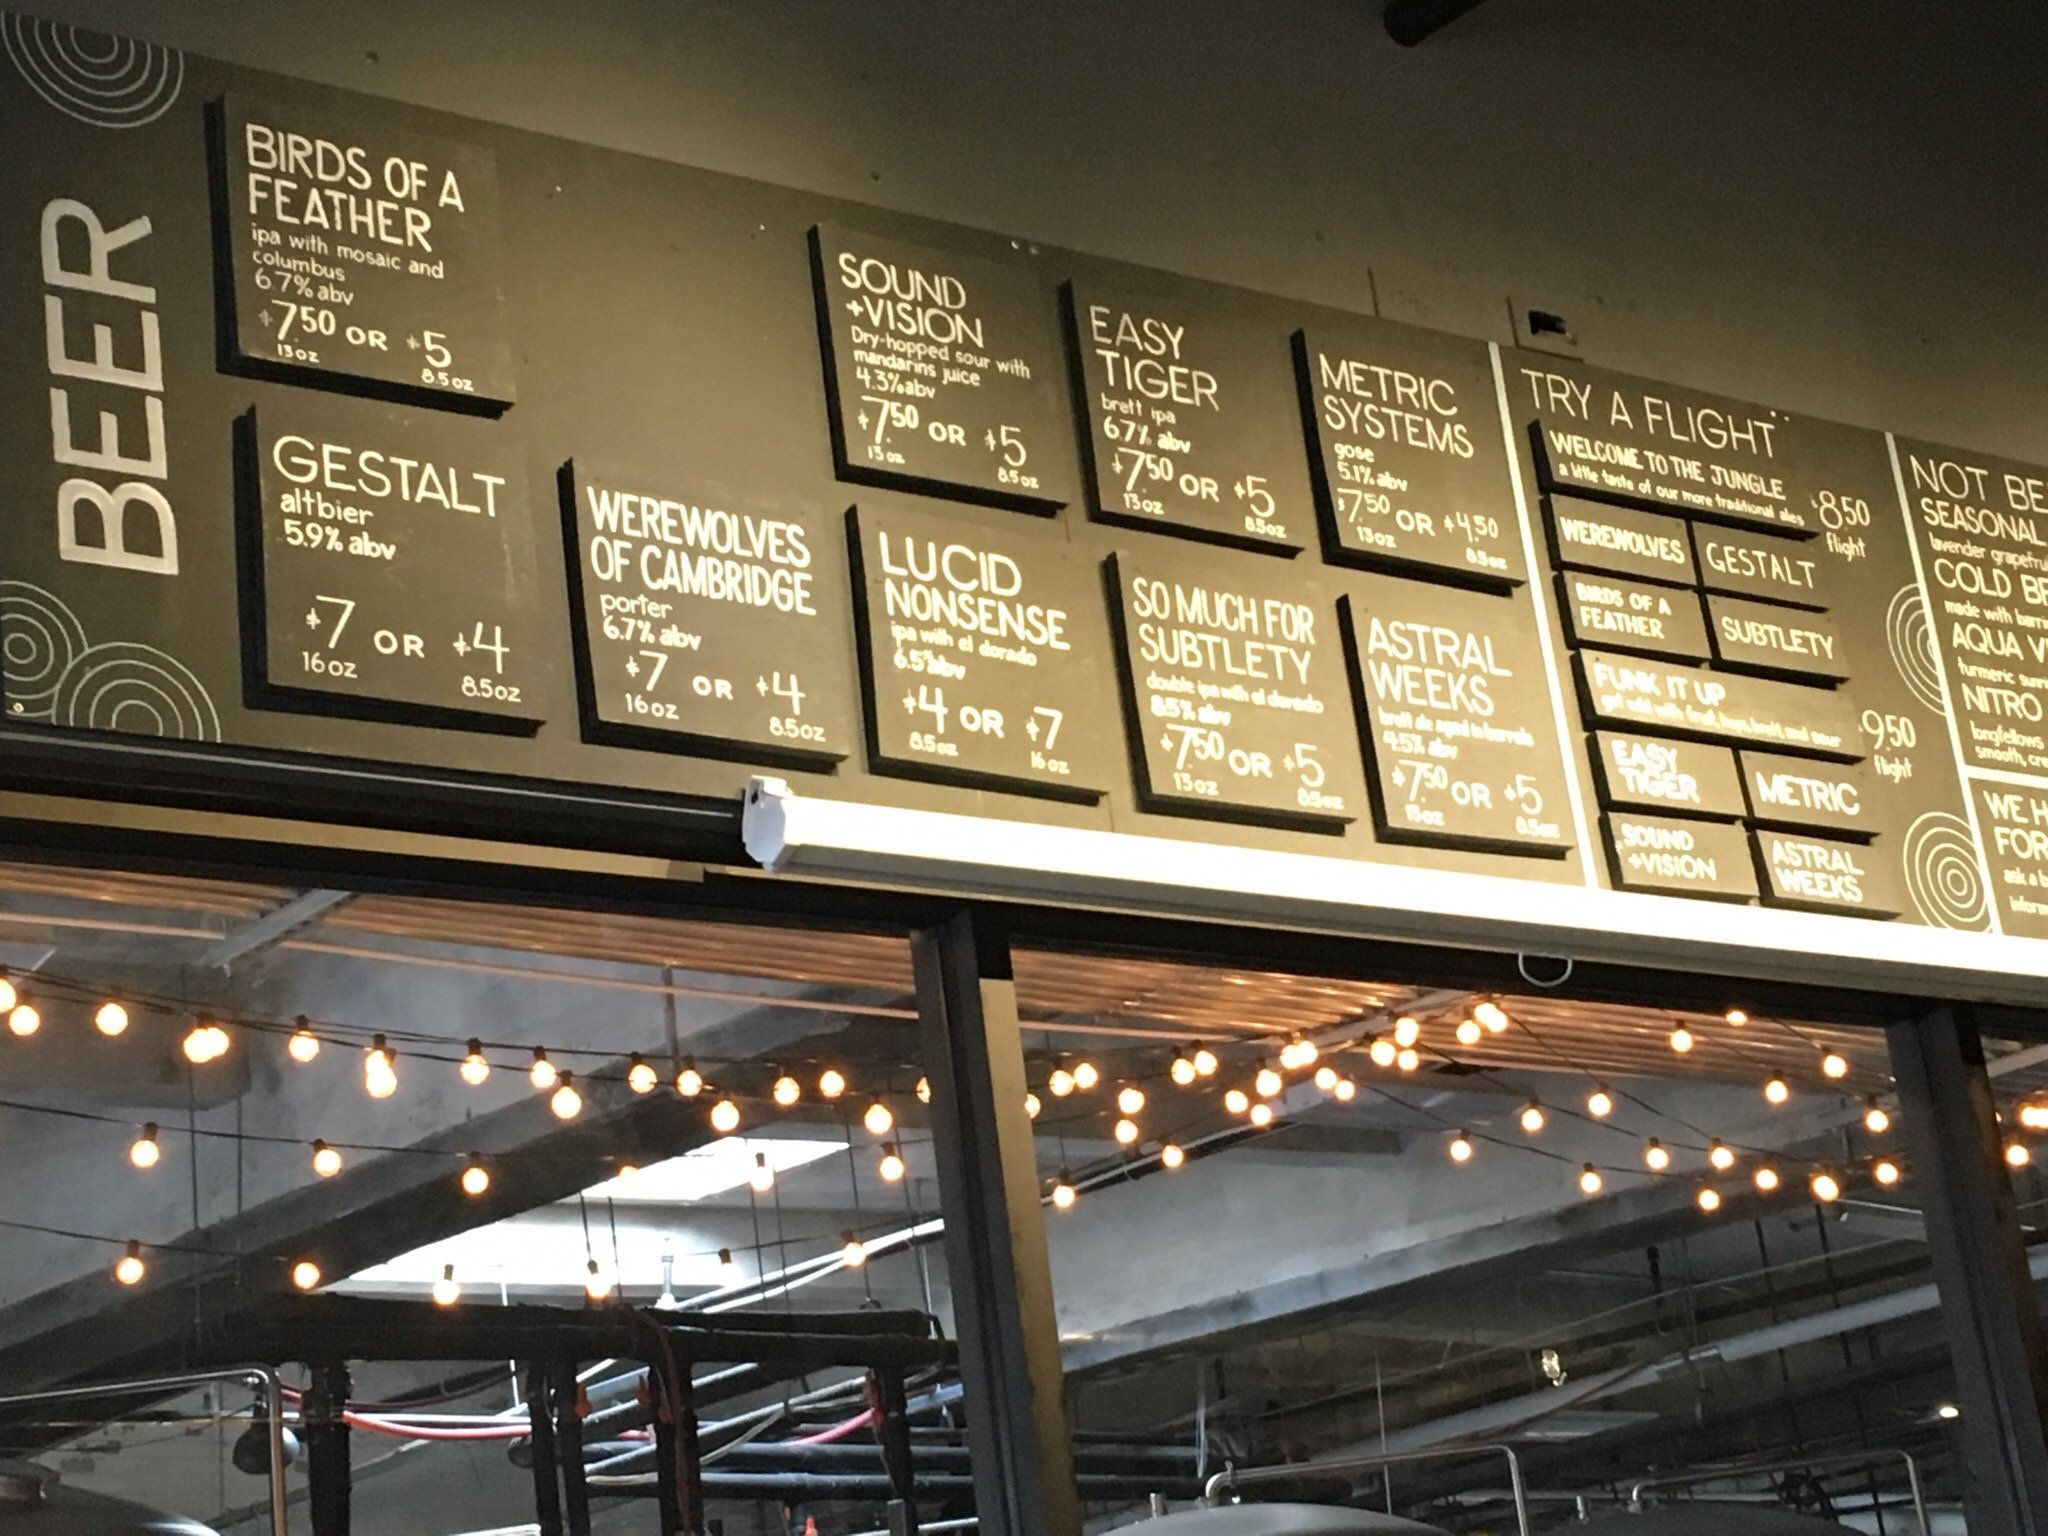 BEER
BIRDS OF A
FEATHER
ipa with mosaic and
columbus
6.7% abv
$7.50 OR $5
13 oz 8.5 oz
GESTALT
altbier
5.9% abv
$7 OR $4
16 oz 8.5 oz
WEREWOLVES
OF CAMBRIDGE
porter
6.7% abv
$7 OR $4
16 oz 8.5 oz
SOUND
+VISION
Dry-hopped sour with
mandarins juice
4.3% abv
$7.50 OR $5
13 oz 8.5 oz
LUCID
NONSENSE
ipa with el dorado
6.5% abv
$4 OR $7
8.5 oz 16 oz
EASY
TIGER
brett ipa
6.7% abv
$7.50 OR $5
13 oz 8.5 oz
SO MUCH FOR
SUBTLETY
double ipa with el dorado
8.5% abv
$7.50 OR $5
13 oz 8.5 oz
METRIC
SYSTEMS
gose
5.1% abv
$7.50 OR $4.50
13 oz 8.5 oz
ASTRAL
WEEKS
brett ale aged in barrels
4.5% abv
$7.50 OR $5
13 oz 8.5 oz
TRY A FLIGHT
WELCOME TO THE JUNGLE
a little taste of our more traditional ales
$8.50
flight
WEREWOLVES GESTALT
BIRDS OF A
FEATHER
SUBTLETY
FUNK IT UP
get wild with fruit, hops, brett, and sour
9.50
flight
EASY
TIGER
METRIC
SOUND
+VISION
ASTRAL
WEEKS
NOT BE
SEASONAL
lavender grapefru
COLD B
made with barri
AQUA V
turmeric sun
NITRO
longfellows
smooth, cre
WE H
FOR
ask a b
inform